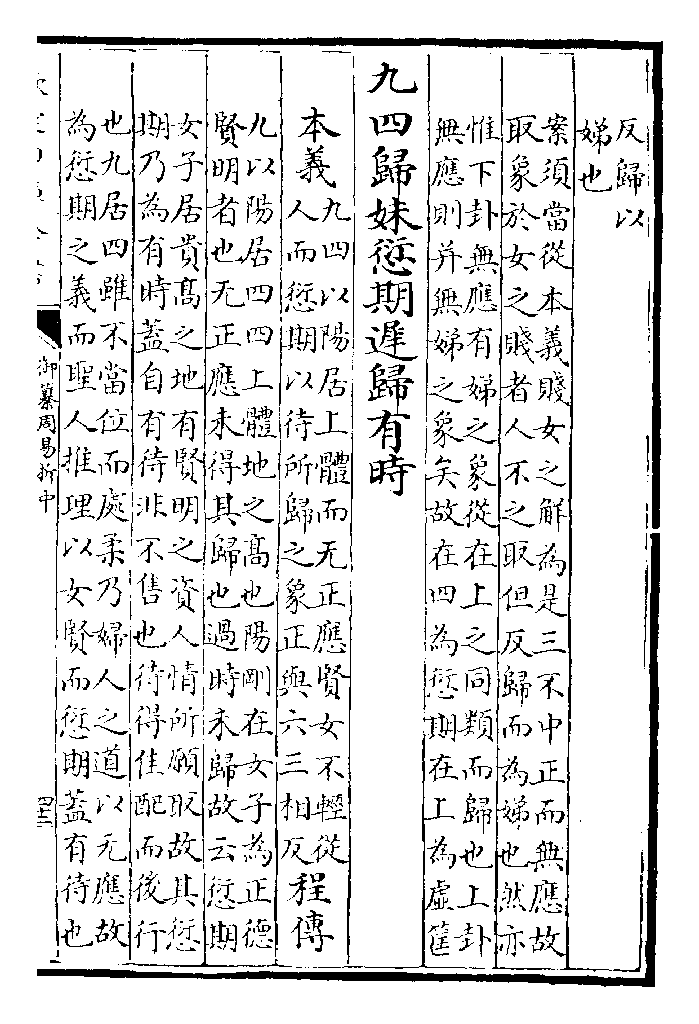 反歸以
娣也
案須當從本義賤女之解為是三不中正而無應故
取象於女之賤者人不之取但反歸而為娣也然亦
惟下卦無應有娣之象從在上之同類而歸也上卦
無應則并無娣之象矣故在四為愆期在上為虛筐
九四歸妹愆期遲歸有時
本義
九四以陽居上體而无正應賢女不輕從
人而愆期以待所歸之象正與六三相反
程傳
九以陽居四四上體地之髙也陽剛在女子為正德
賢明者也无正應未得其歸也過時未歸故云愆期
女子居貴髙之地有賢明之資人情所願取故其愆
期乃為有時葢自有待非不售也待得佳配而後行
也九居四雖不當位而處柔乃婦人之道以无應故
為愆期之義而聖人推理以女賢而愆期葢有待也
御纂周易折中